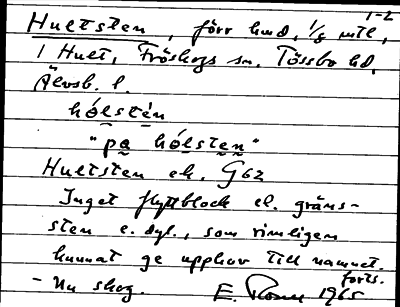 1-2
Hultsten, förr hmd, 1/8 mtl,
i Hult, Fröskogs sn. Tössbo hd,
Älvsb. l.
hólstén
"pa hólsten"
Hultsten ek. G62
Inget flyttblock el. gräns-
sten e. dyl., som rimligen
kunnat ge upphov till namnet.
forts.
- Nu skog. E. 1965